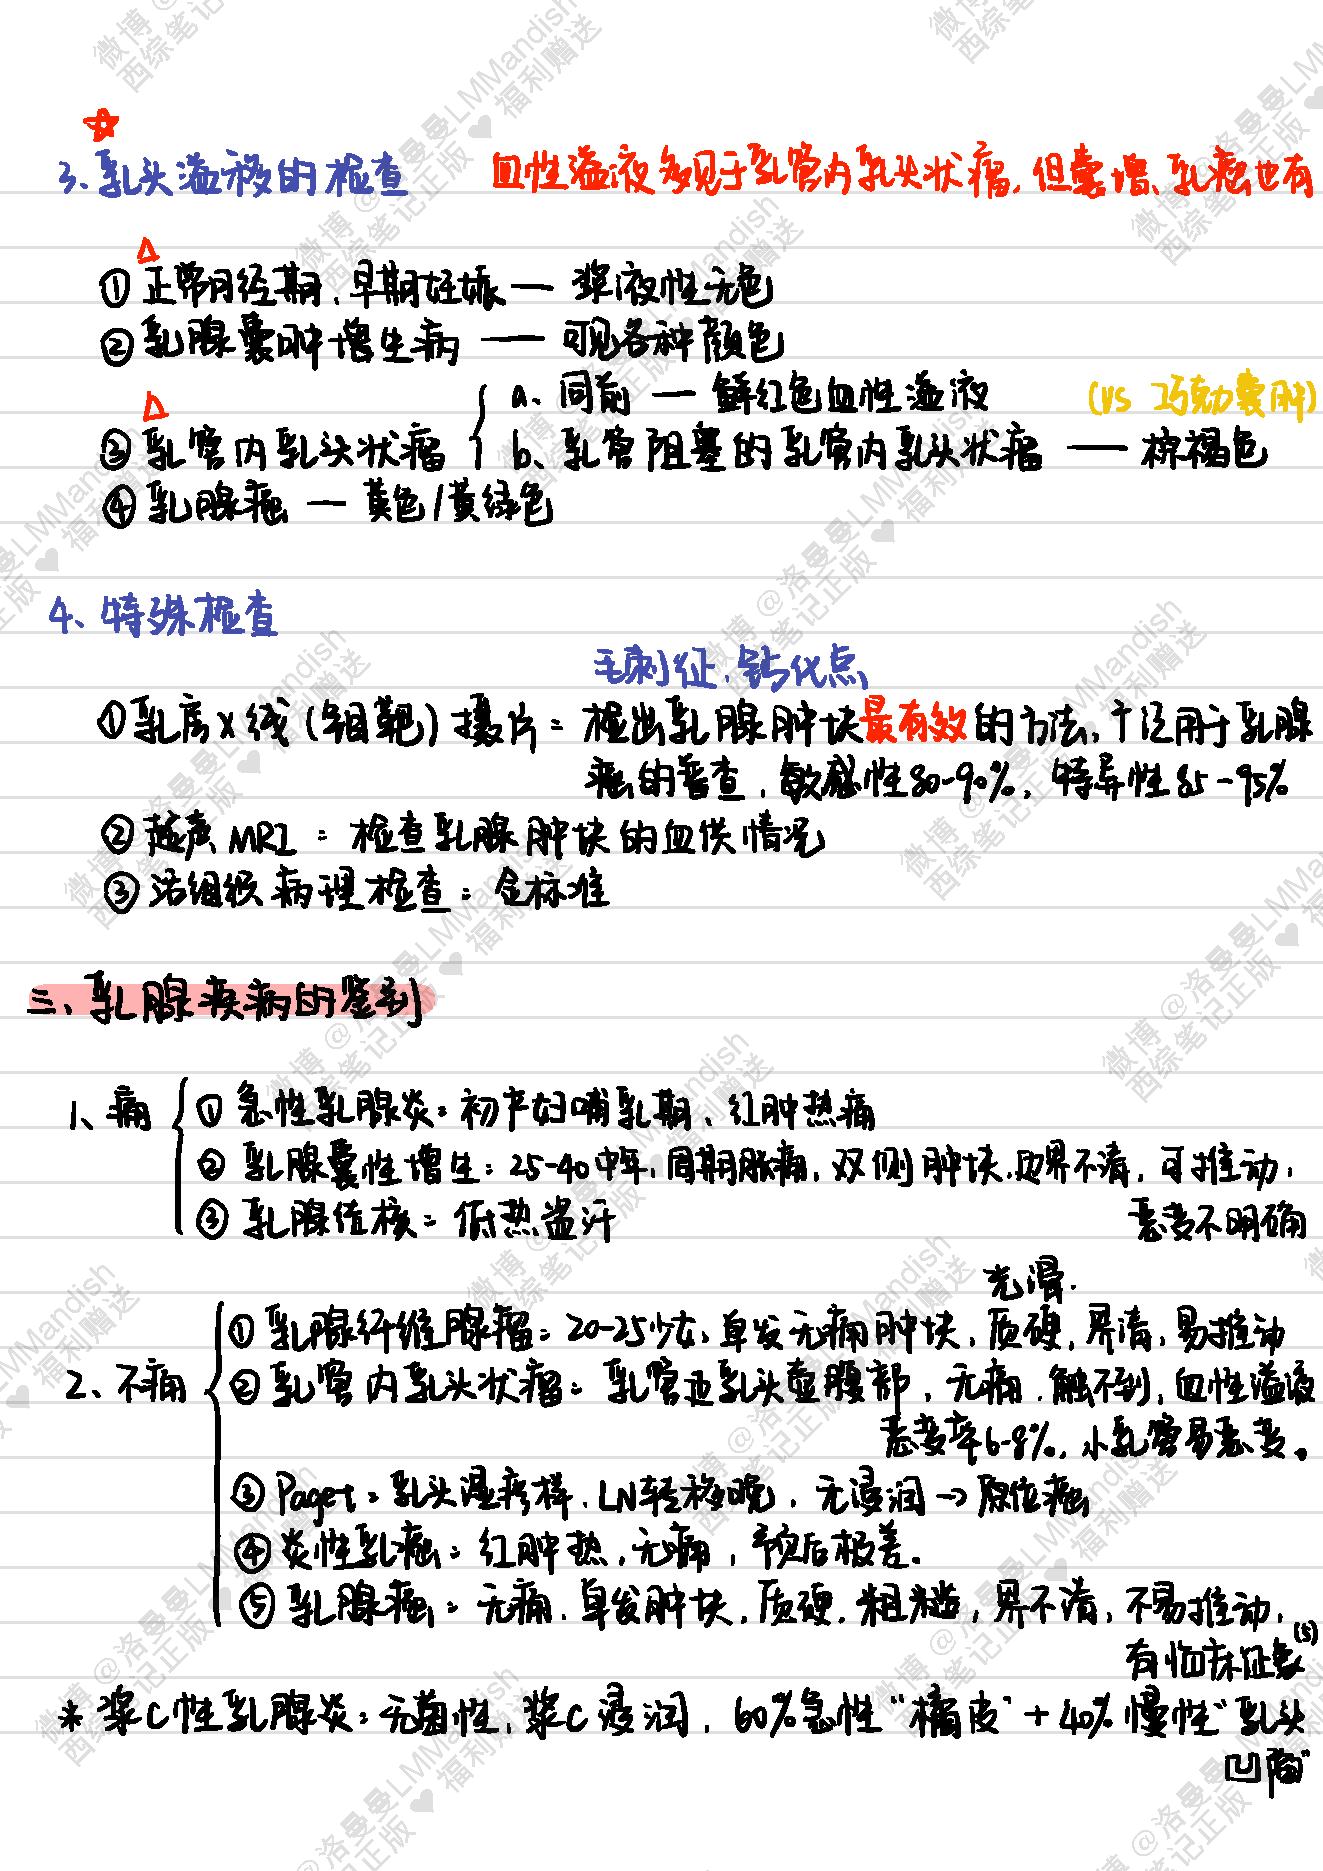 ☆
3、乳头溢液的检查 血性溢液多见于乳管内乳头状瘤，但囊增、乳癌也有
△
① 正常月经期、早期妊娠 — 浆液性无色
② 乳腺囊肿增生病 — 可见各种颜色
△ a、同前 — 鲜红色血性溢液 (vs 巧克力囊肿)
③ 乳管内乳头状瘤 b、乳管阻塞的乳管内乳头状瘤 — 棕褐色
④ 乳腺癌 — 黄色/黄绿色
4、特殊检查
毛刺征、钙化点
① 乳房X线(钼靶)摄片：检出乳腺肿块最有效的方法，广泛用于乳腺
癌的普查，敏感性80-90%，特异性85-95%
② 超声MRI：检查乳腺肿块的血供情况
③ 活组织病理检查：金标准
三、乳腺疾病的鉴别
1、痛 ① 急性乳腺炎：初产妇哺乳期、红肿热痛
② 乳腺囊性增生：25-40中年，周期胀痛，双侧肿块，边界不清，可推动，
恶变不明确
③ 乳腺结核：低热盗汗
光滑，
① 乳腺纤维腺瘤：20-25少女，单发无痛肿块，质硬，界清，易推动
2、不痛 ② 乳管内乳头状瘤：乳管近乳头壶腹部，无痛，触不到，血性溢液
恶变率6-8%，小乳管易恶变。
③ Paget：乳头湿疹样，LN转移晚，无浸润→原位癌
④ 炎性乳癌：红肿热，无痛，预后极差。
⑤ 乳腺癌：无痛，单发肿块，质硬，粗糙，界不清，不易推动，
有临床征象(5)
* 浆C性乳腺炎：无菌性，浆C浸润，60%急性“橘皮”+40%慢性“乳头
凹陷”
微博@洛曼曼LMMandish
西综笔记正版♥福利赠送